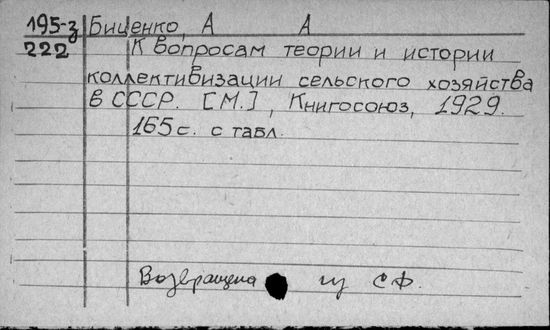 195-з Биценко, А А
222 К вопросам теории и истории
коллективизации сельского хозяйства
в СССР. [М.], Книгосоюз, 1929.
165 с. с табл.
Возвращена из СФ.